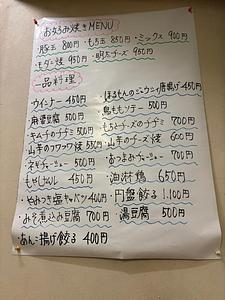 お好み焼きMENU
・豚玉 800円 ・もち玉 850円 ・ミックス 900円
・モダン焼 950円 ・明太チーズ 950円
一品料理
・ウインナー 450円
・麻婆豆腐 500円
・キムチのチヂミ 500円
・山芋のフワフワ焼 550円
・ネギチャーシュー 500円
・もやしナムル 450円
・やみつき塩キャベツ 400円
・みそ煮込み豆腐 700円
・あんこ揚げ餃子 400円
・ほるもんのニンニク唐揚げ 450円
・鳥ももソテー 500円
・もちとチーズのチヂミ 700円
・山芋のチーズ焼 600円
・おつまみチャーシュー 700円
・油淋鶏 650円
・円盤餃子 1.100円
・湯豆腐 500円